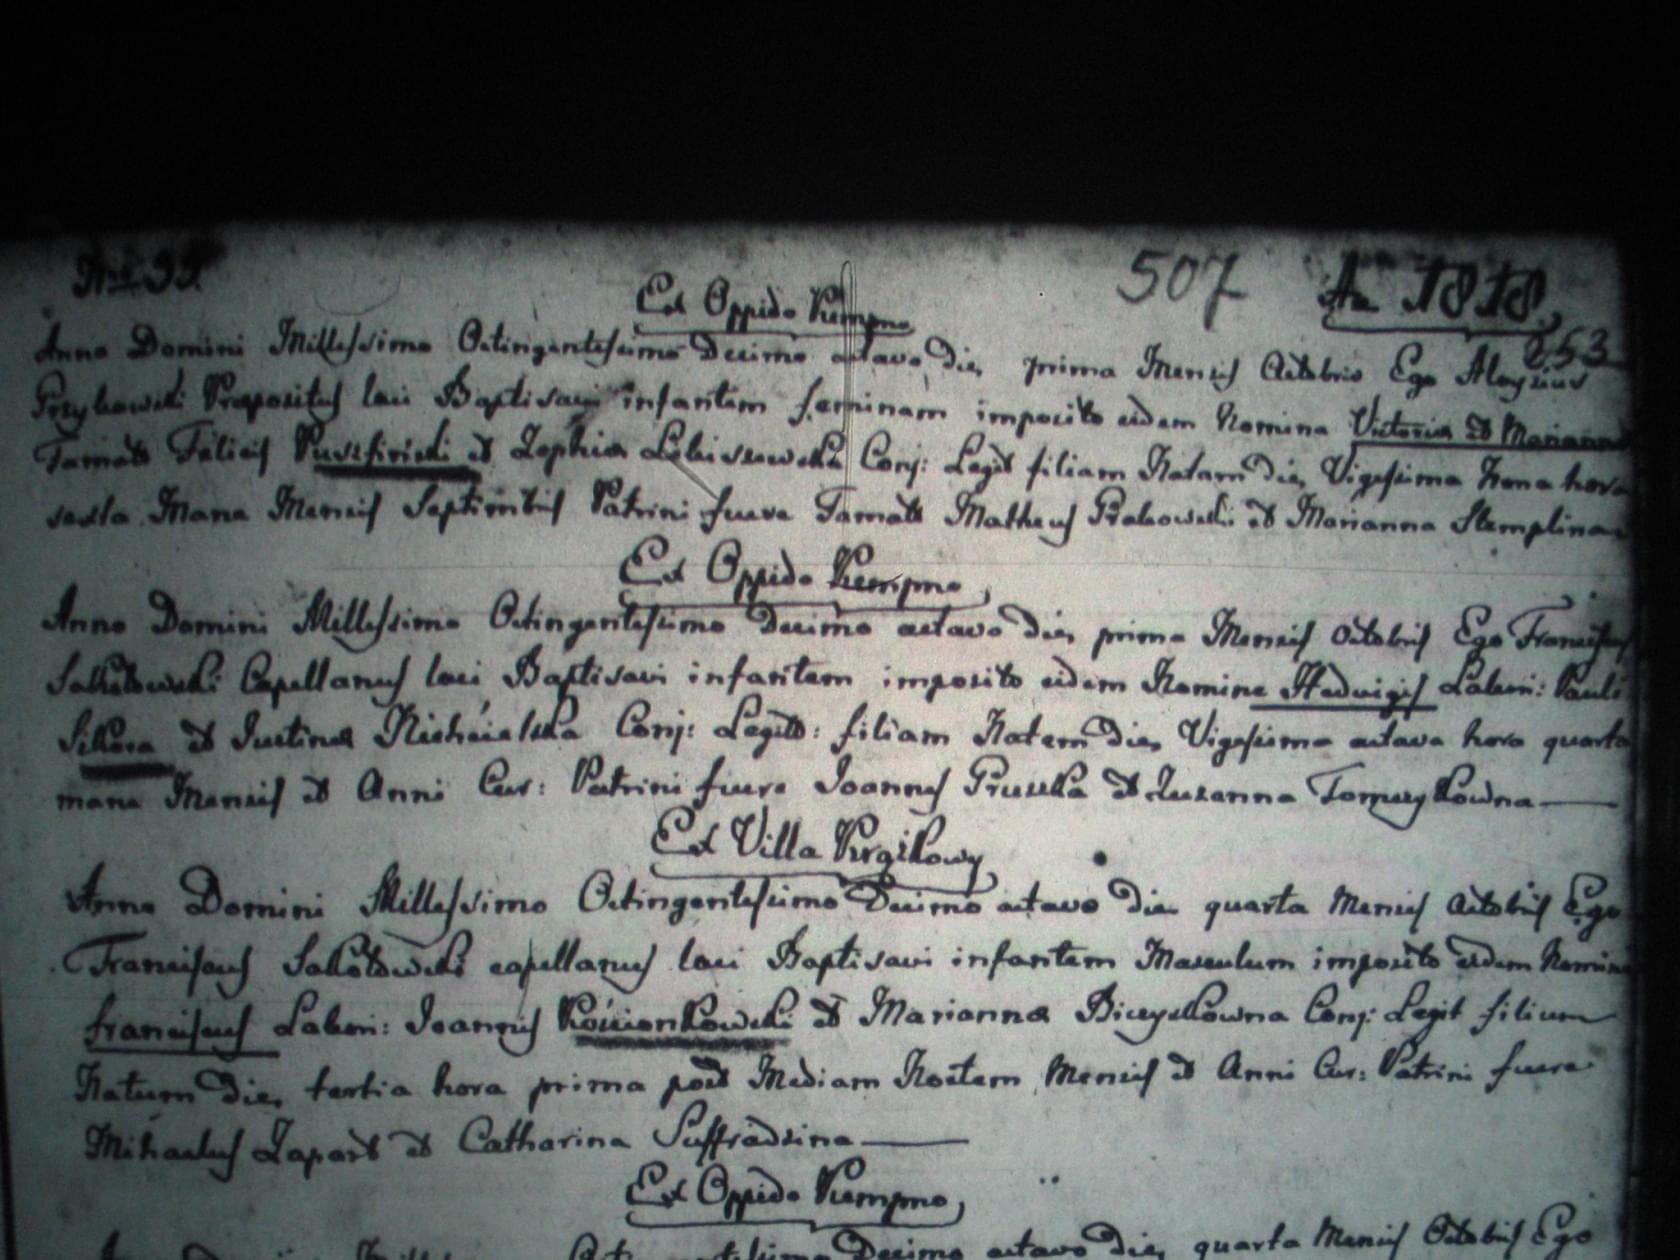 507 An 1818
Ex Oppido Kempno 253
Anno Domini Millessimo Octingentesimo Decimo octavo die prima Mensis Octobris Ego Aloysius
Przybowski Prepositus loci Baptisavi infantem feminam imposito eidem Nomina Victoria et Marianna
Famats Felicis et Zophia Conj: Legit filiam Natam die Vigesima Nona hora
sexta Mane Mensis Septembris Patrini fuere Famats Matheus Grabowski et Marianna Stemplina
Ex Oppido Kempno
Anno Domini Millessimo Octingentesimo Decimo octavo die prima Mensis Octobris Ego Franciscus
Sokołowski Capellanus loci Baptisavi infantem imposito eidem Nomine Hedvigis Labori: Pauli
Sikora et Iustina Conj: Legit: filiam Natam die Vigesima octava hora quarta
mane Mensis et Anni Cur: Patrini fuere Joannes Gruszka et Zuzanna
Ex Villa
Anno Domini Millessimo Octingentesimo Decimo octavo die quarta Mensis Octobris Ego
Franciscus Sokołowski capellanus loci Baptisavi infantem Masculum imposito eidem Nomine
Franciscus Labori: Joannis Kościonkowski et Marianna Conj: Legit filium
Natum die tertia hora prima post Mediam Noctem Mensis et Anni Cur: Patrini fuere
Michaelus Zapart et Catharina
Ex Oppido Kempno
Decimo octavo die quarta Mensis Octobris Ego